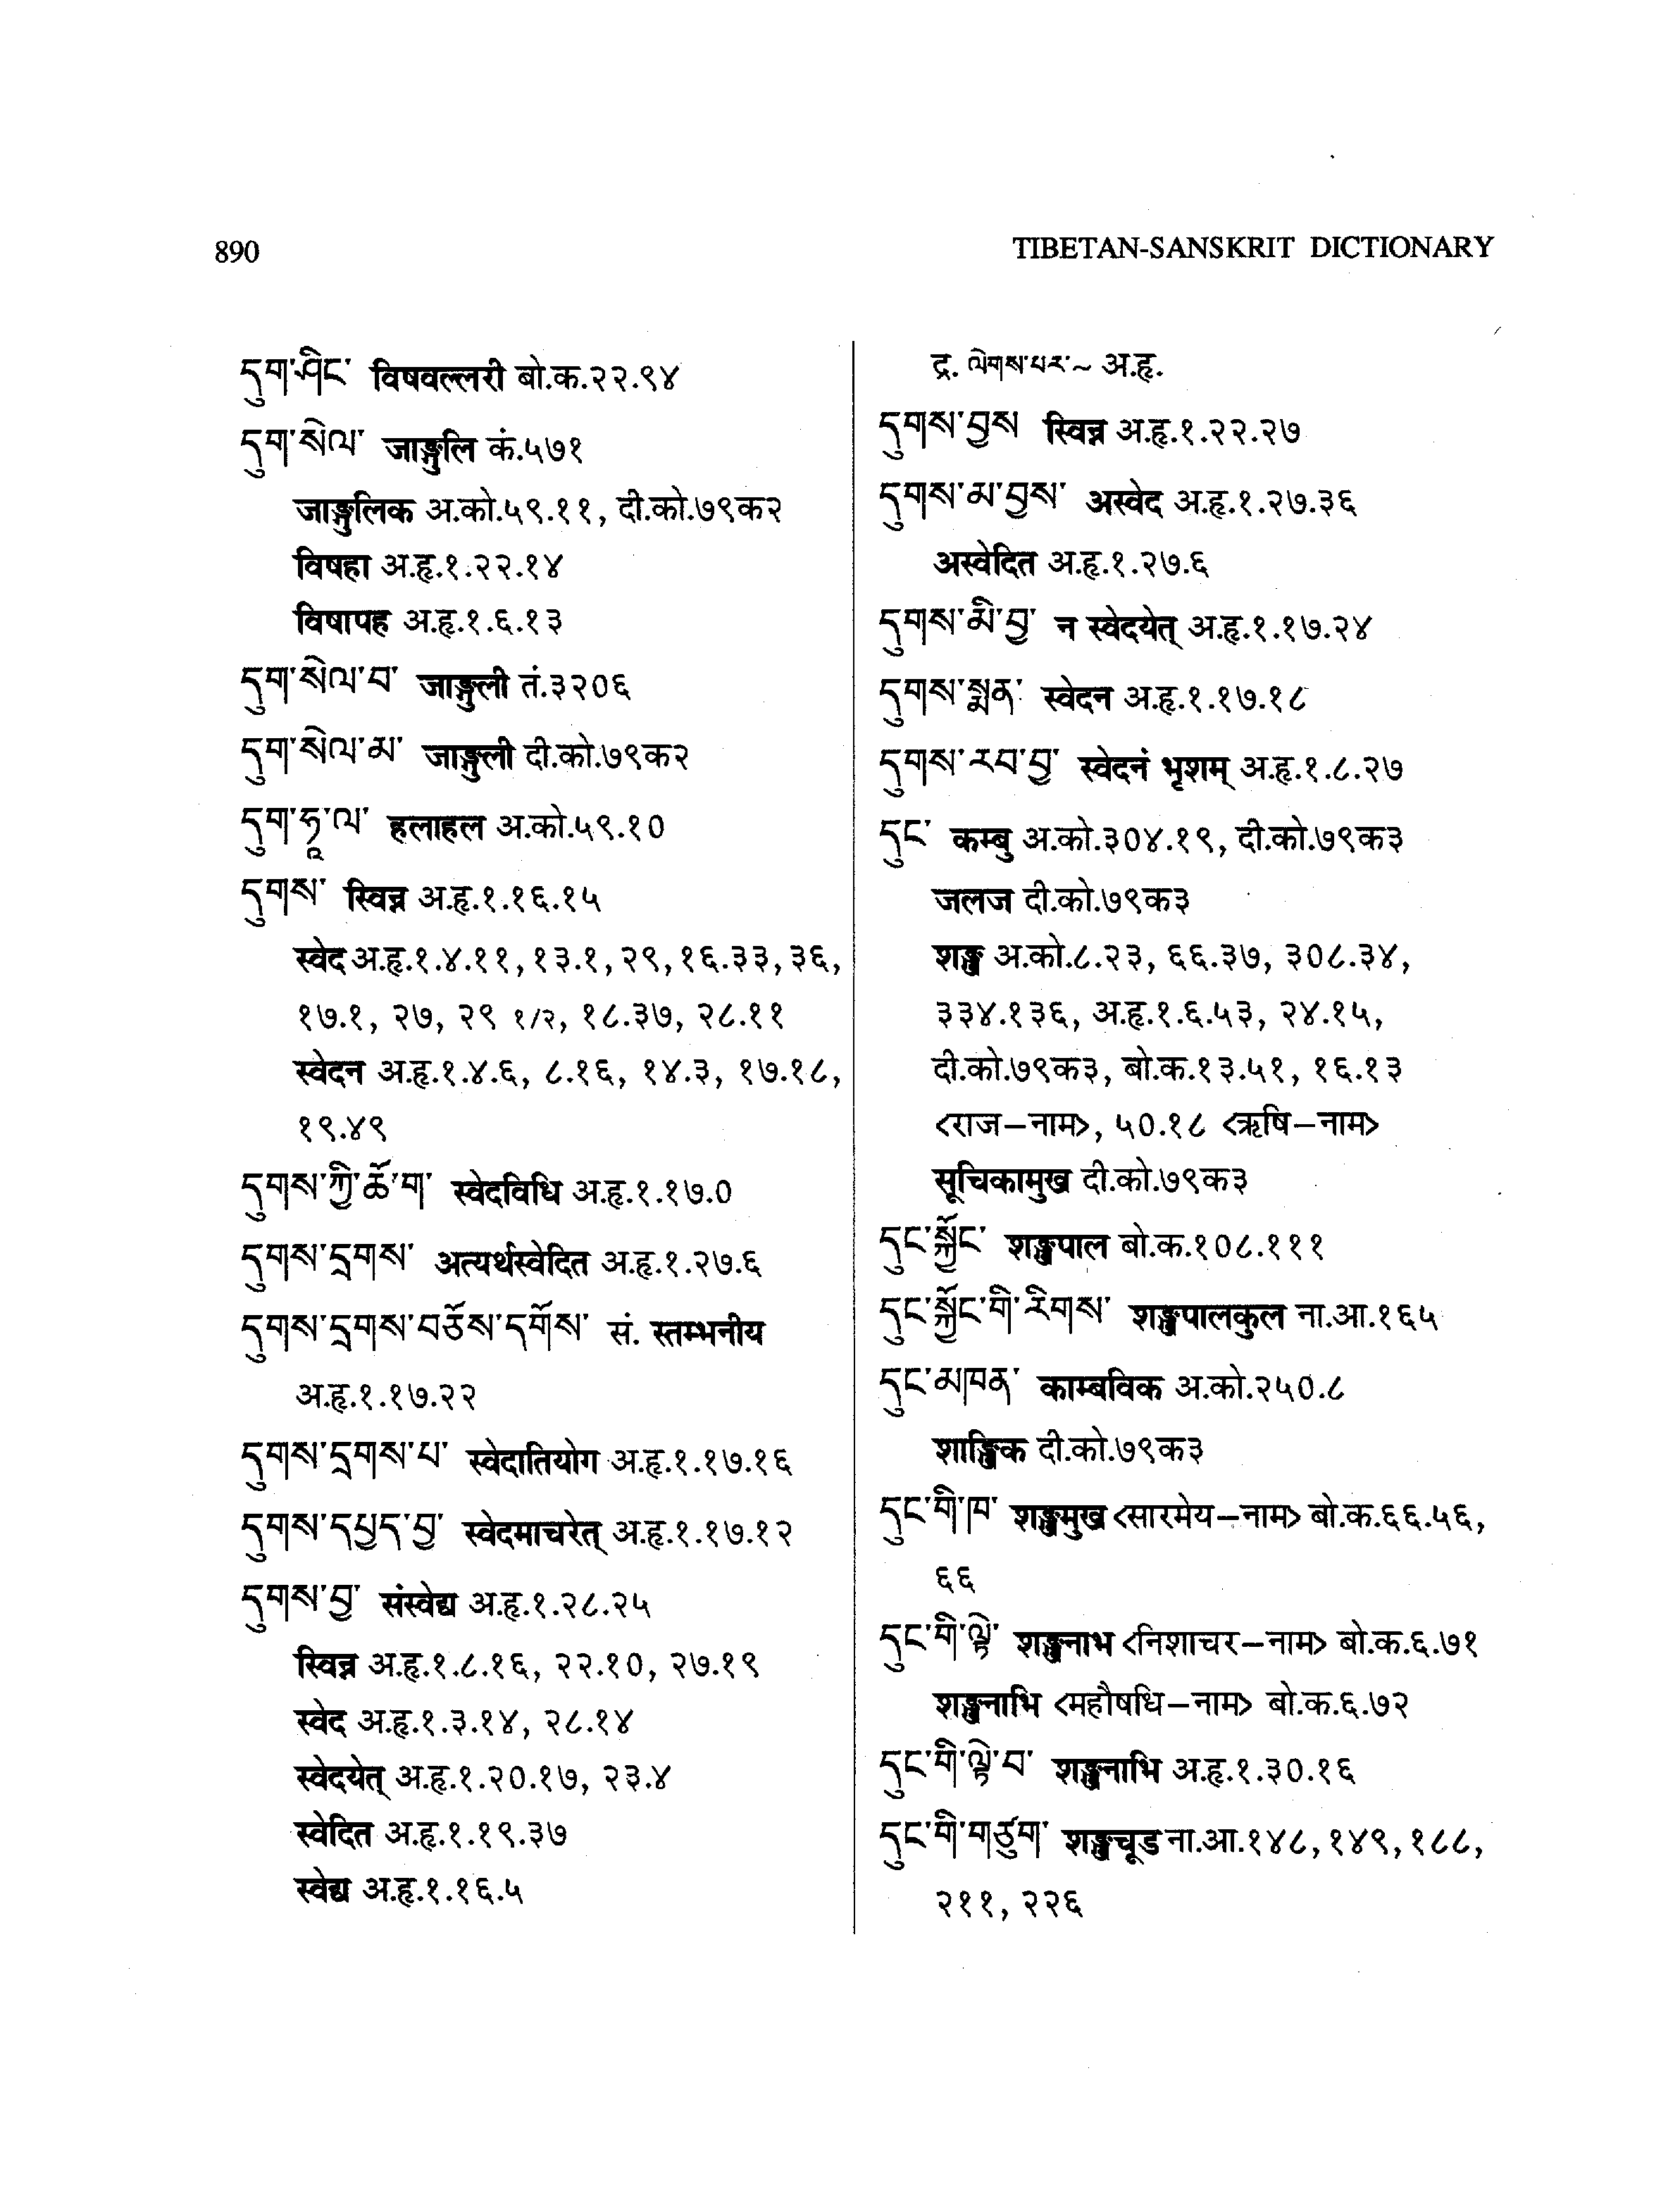 890
TIBETAN-SANSKRIT DICTIONARY
དུག་ཤིང་ विषवल्लरी बो.क.२२.९४
དུག་སེལ་ जाङ्गुलि कं.५७१
जाङ्गुलिक अ.को.५९.११, दी.को.७९क२
विषहा अ.हृ.१.२२.१४
विषापह अ.हृ.१.६.१३
དུག་སེལ་བ་ जाङ्गुली तं.३२०६
དུག་སེལ་མ་ जाङ्गुली दी.को.७९क२
དུག་ཧཱ་ལ་ हलाहल अ.को.५९.१०
དུགས་ स्विन्न अ.हृ.१.१६.१५
स्वेद अ.हृ.१.४.११, १३.१, २९, १६.३३, ३६,
१७.१, २७, २९ १/२, १८.३७, २८.११
स्वेदन अ.हृ.१.४.६, ८.१६, १४.३, १७.१८,
१९.४९
དུགས་ཀྱི་ཆོ་ག་ स्वेदविधि अ.हृ.१.१७.०
དུགས་དྲགས་ अत्यर्थस्वेदित अ.हृ.१.२७.६
དུགས་དྲགས་བཅོས་དགོས་ सं. स्तम्भनीय
अ.हृ.१.१७.२२
དུགས་དྲགས་པ་ स्वेदातियोग अ.हृ.१.१७.१६
དུགས་དཔྱད་བྱ་ स्वेदमाचरेत् अ.हृ.१.१७.१२
དུགས་བྱ་ संस्वेद्य अ.हृ.१.२८.२५
स्विन्न अ.हृ.१.८.१६, २२.१०, २७.१९
स्वेद अ.हृ.१.३.१४, २८.१४
स्वेदयेत् अ.हृ.१.२०.१७, २३.४
स्वेदित अ.हृ.१.१९.३७
स्वेद्य अ.हृ.१.१६.५
द्र. ལེགས་པར་~ अ.हृ.
དུགས་བྱས स्विन्न अ.हृ.१.२२.२७
དུགས་མ་བྱས་ अस्वेद अ.हृ.१.२७.३६
अस्वेदित अ.हृ.१.२७.६
དུགས་མི་བྱ་ न स्वेदयेत् अ.हृ.१.१७.२४
དུགས་སྨན་ स्वेदन अ.हृ.१.१७.१८
དུགས་རབ་བྱ་ स्वेदनं भृशम् अ.हृ.१.८.२७
དུང་ कम्बु अ.को.३०४.१९, दी.को.७९क३
जलज दी.को.७९क३
शङ्ख अ.को.८.२३, ६६.३७, ३०८.३४,
३३४.१३६, अ.हृ.१.६.५३, २४.१५,
दी.को.७९क३, बो.क.१३.५१, १६.१३
<राज–नाम>, ५०.१८ <ऋषि–नाम>
सूचिकामुख दी.को.७९क३
དུང་སྐྱོང་ शङ्खपाल बो.क.१०८.१११
དུང་སྐྱོང་གི་རིགས་ शङ्खपालकुल ना.आ.१६५
དུང་མཁན་ काम्बविक अ.को.२५०.८
शाङ्खिक दी.को.७९क३
དུང་གི་ཁ་ शङ्खमुख <सारमेय–नाम> बो.क.६६.५६,
६६
དུང་གི་ལྟེ་ शङ्खनाभ <निशाचर–नाम> बो.क.६.७१
शङ्खनाभि <महौषधि–नाम> बो.क.६.७२
དུང་གི་ལྟེ་བ་ शङ्खनाभि अ.हृ.१.३०.१६
དུང་གི་གཙུག་ शङ्खचूड ना.आ.१४८, १४९, १८८,
२११, २२६